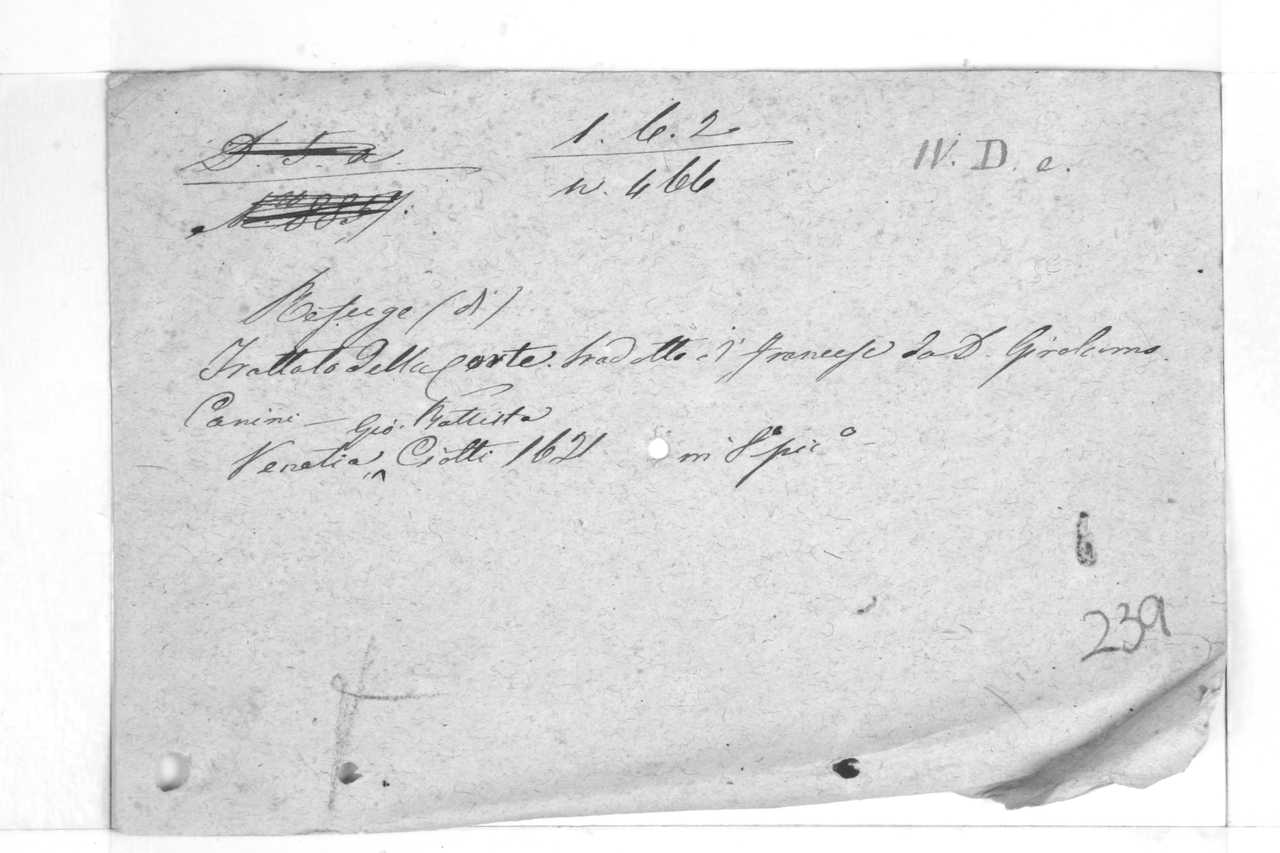 D. 5. a.
1. 6. 2
IV. D. e.
n. 466
Refuge (di)
Trattato della Corte. tradotto d' francese da D. Girolamo
Canini — Gio. Battista
Venetia Ciotti 1621 in 8° pic°
239